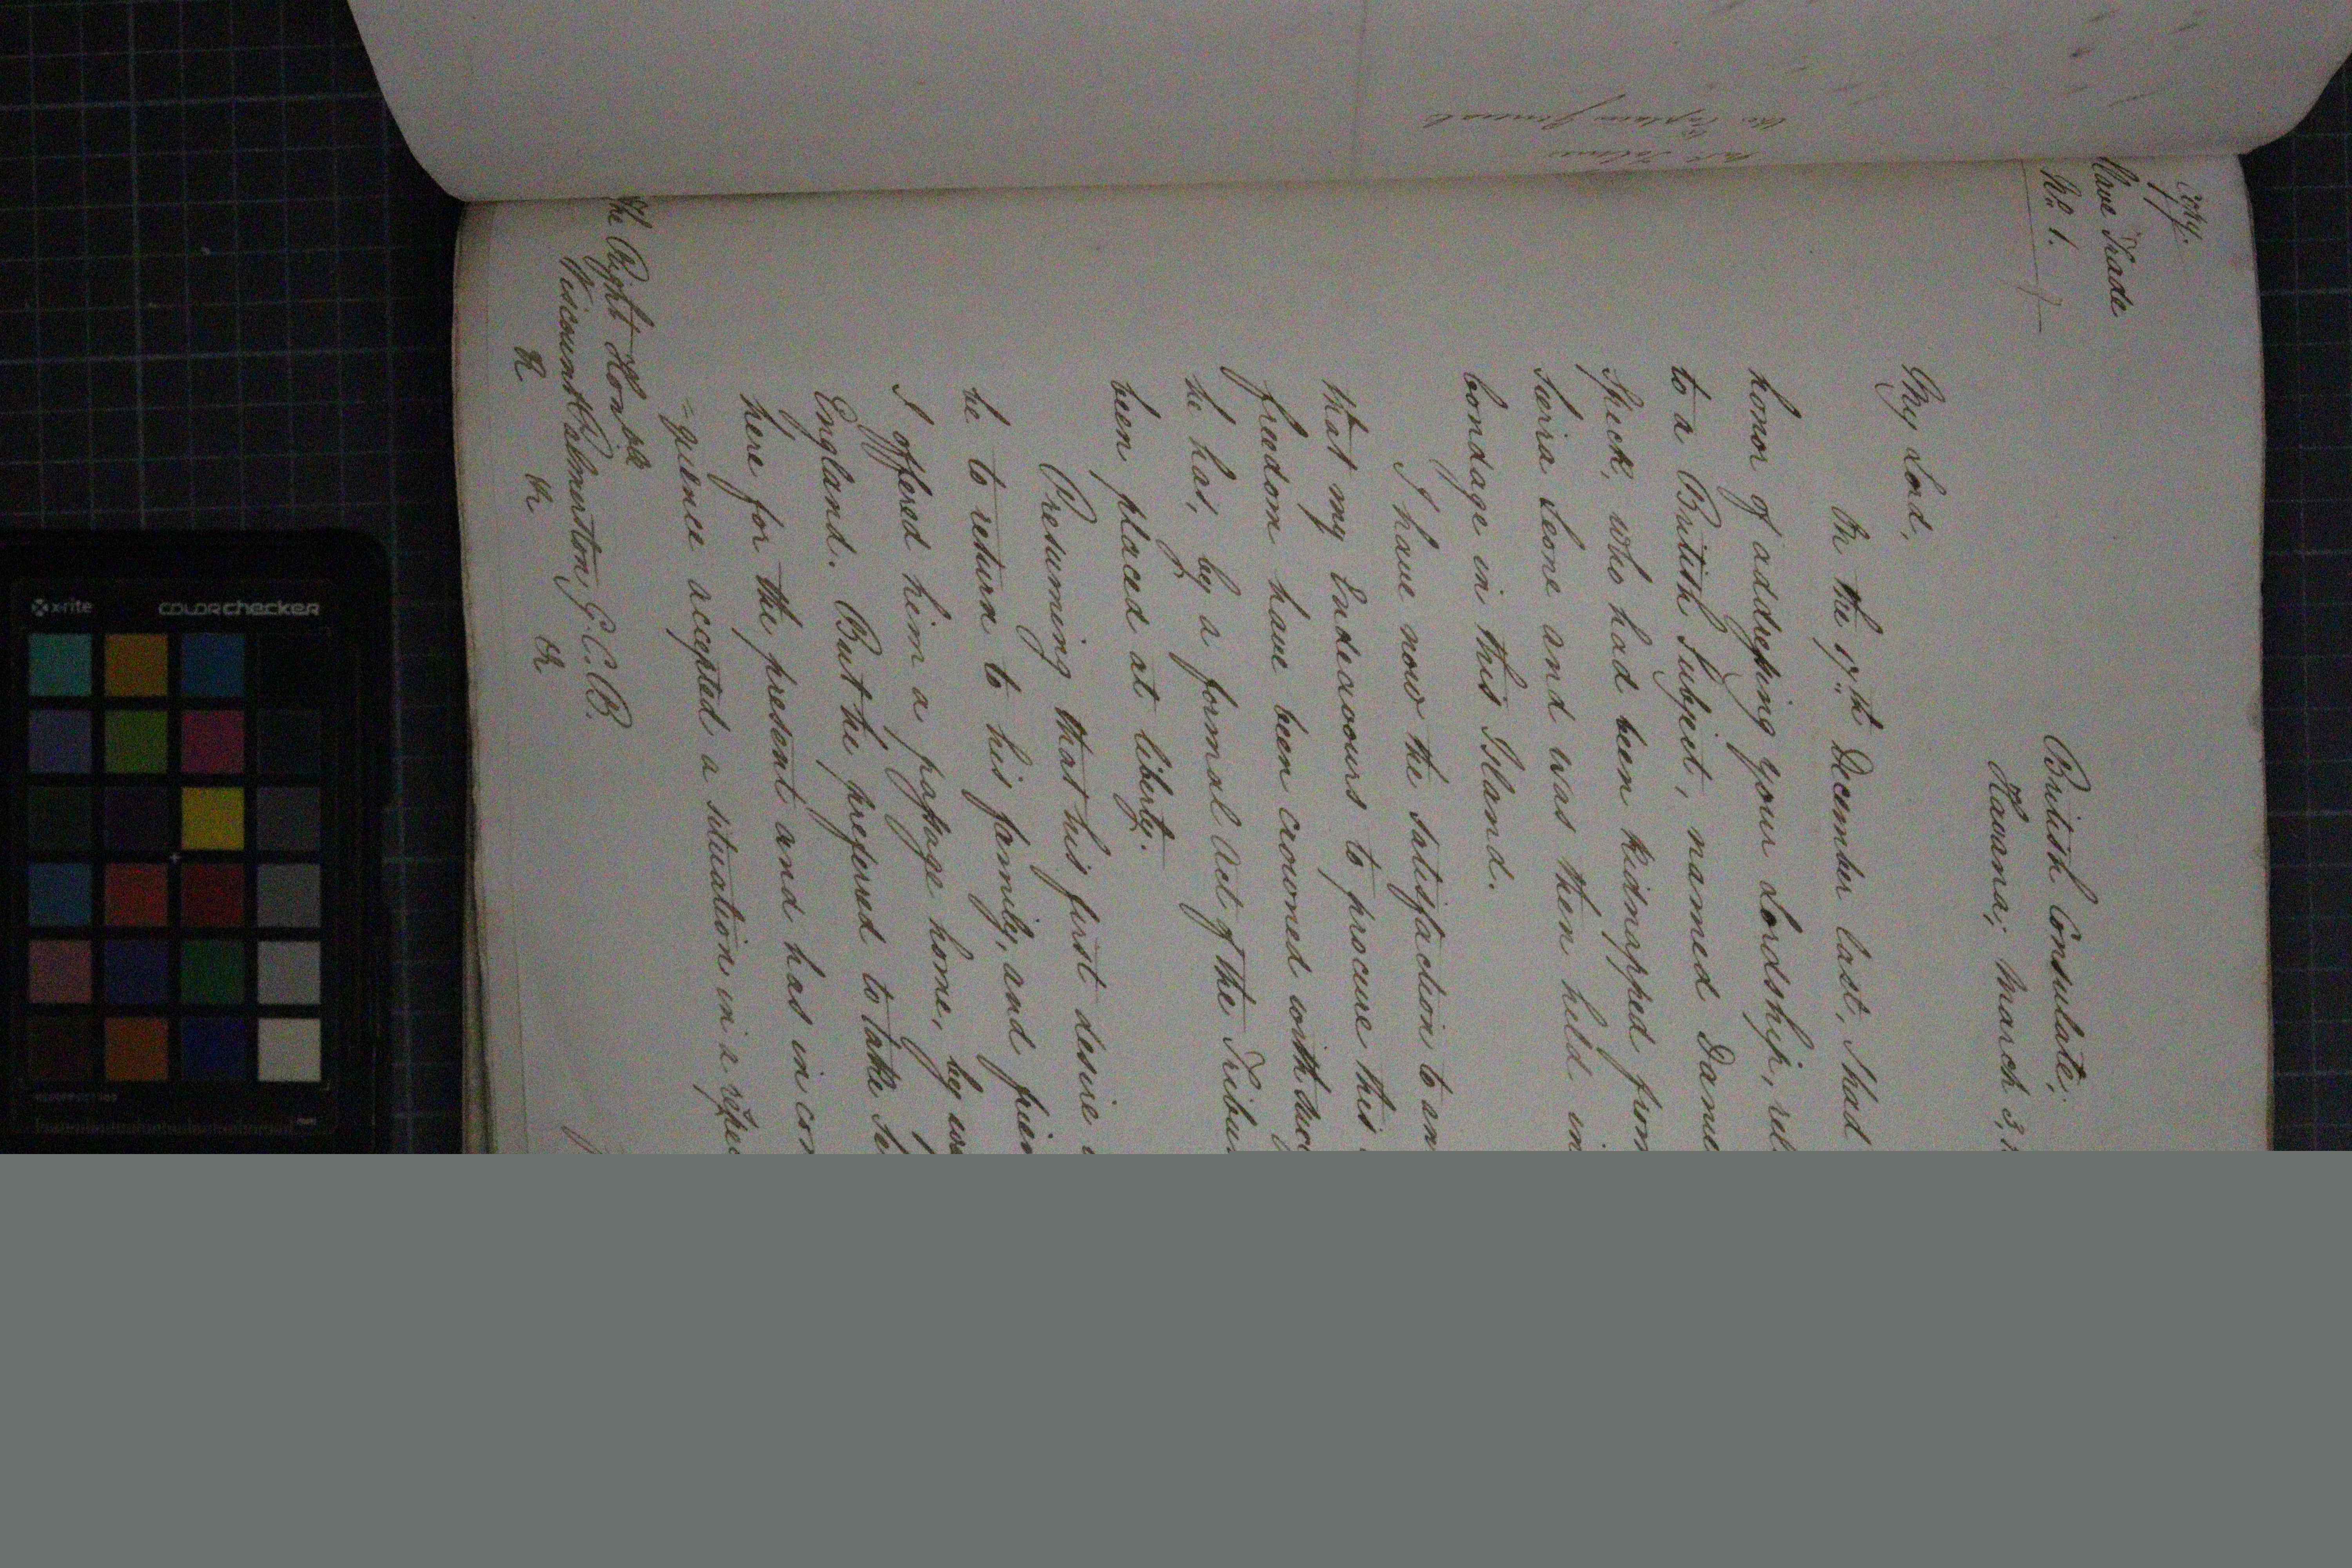 Copy.
Slave Trade
No. 1.
British Consulate;
Havana; March 3,
My Lord,
On the 17th December last, I had
honor of addressing your Lordship, rel
to a British Subject, named Danie
Speck, who had been kidnapped from
Seirra Leone and was then held in
bondage in this Island.
I have now the satisfaction to an
that my Endeavours to procure this
freedom have been crowned with suc
he has, by a formal Act of the Tribu
been placed at liberty.
Presuming that his first desire
be to return to his family, and frien
I offered him a passage home, by wa
England. But he preferred to take se
here for the present and has in con
=quence accepted a situation in a respe
The Right Honble
Viscount Palmerston, G.C.B.
&c &c &c
the Captain General
x-rite
colorchecker
mm